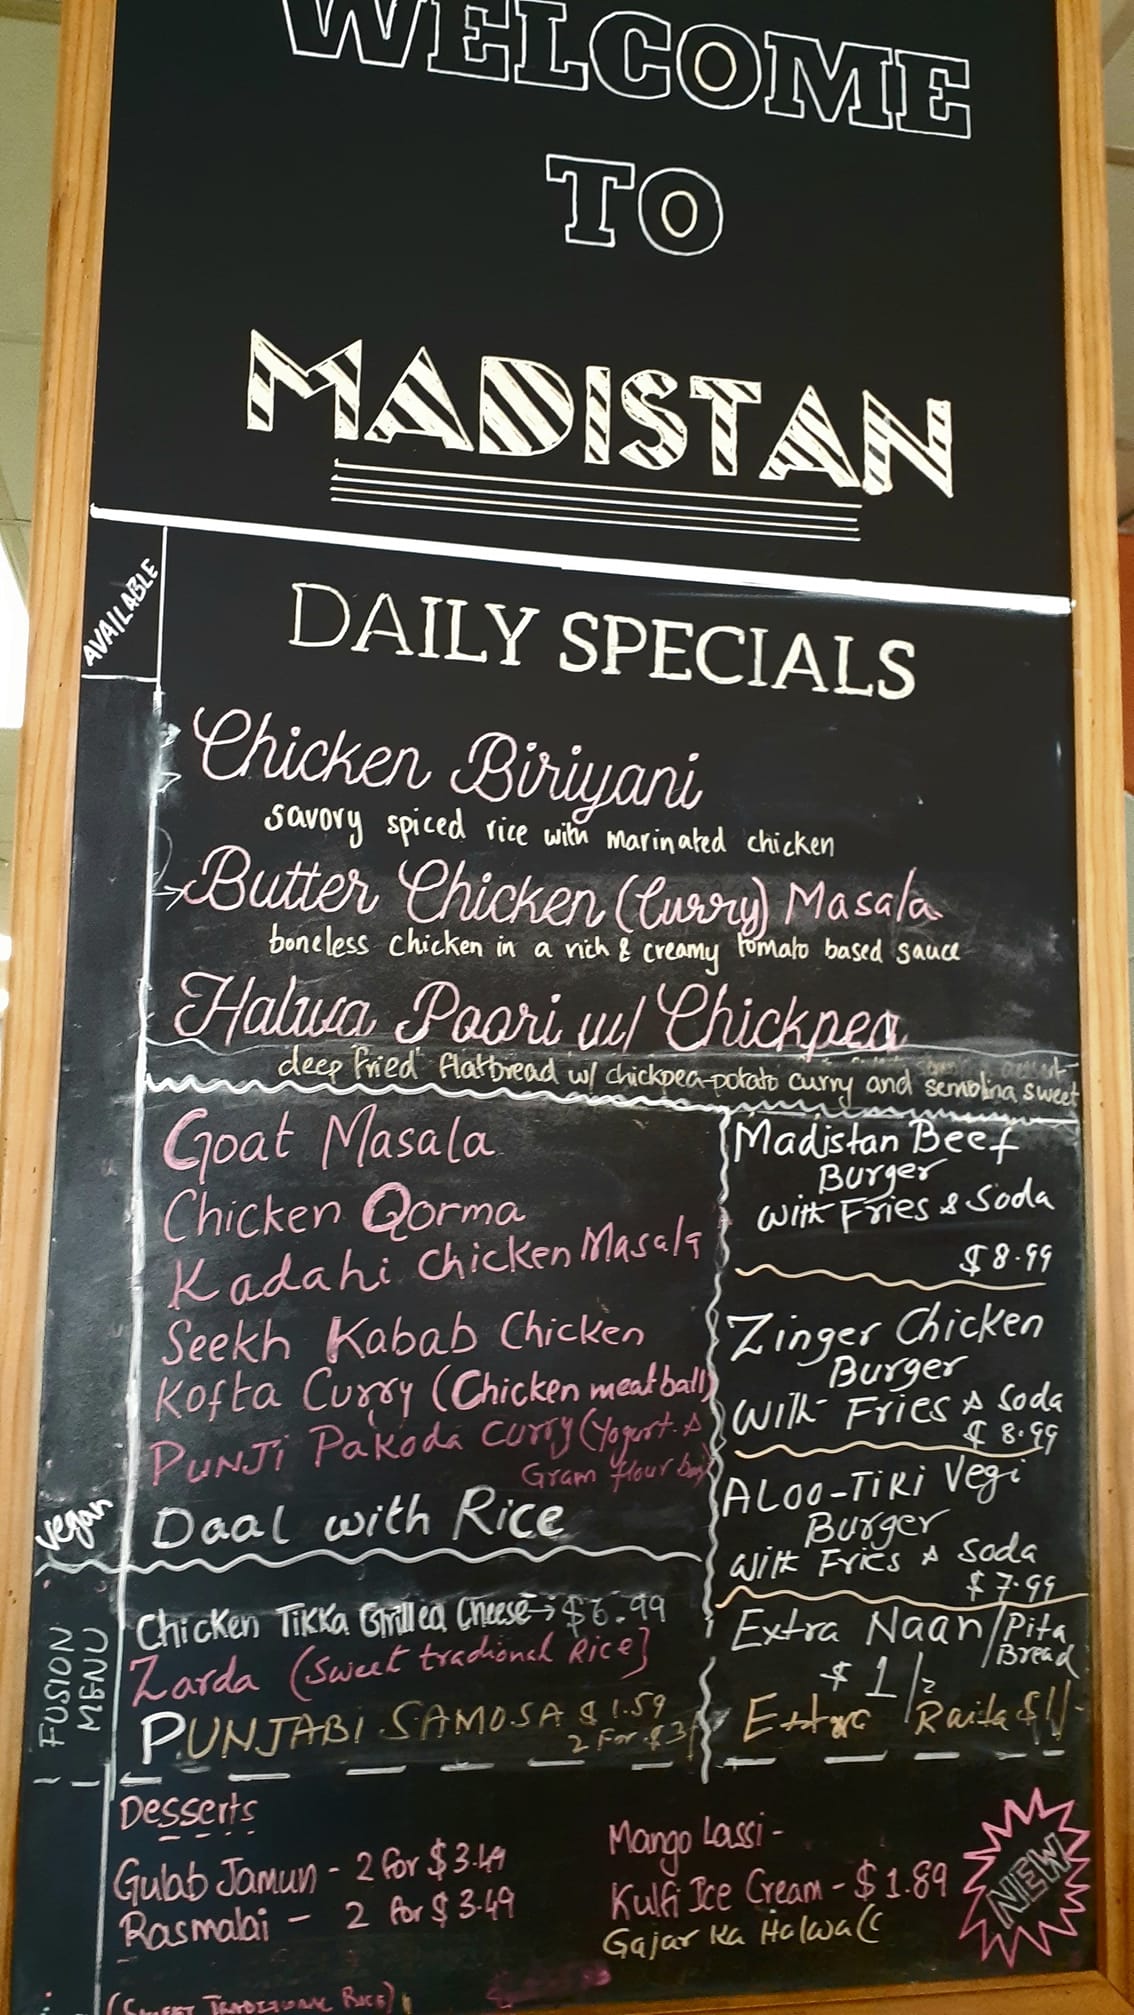 WELCOME
TO
MADISTAN
AVAILABLE
DAILY SPECIALS
Chicken Biriyani
savory spiced rice with marinated chicken
Butter Chicken (Curry) Masala
boneless chicken in a rich & creamy tomato based sauce
Halwa Poori w/ Chickpea
deep fried flatbread w/ chickpea-potato curry and semolina sweet
Goat Masala
Chicken Qorma
Kadahi Chicken Masala
Seekh Kabab Chicken
Kofta Curry (Chicken meat ball)
PUNJI Pakoda Curry (Yogurt &
Gram flour
vegan
Daal with Rice
Madistan Beef
Burger
with Fries & Soda
$8.99
Zinger Chicken
Burger
with Fries & Soda
$8.99
ALOO-TIKI Vegi
Burger
with Fries & Soda
$7.99
Extra Naan/Pita
Bread
$1/2
Extra Raita $1/-
FUSION
MENU
Chicken TIKKA Grilled Cheese → $6.99
Zarda (Sweet tradional Rice)
PUNJABI SAMOSA $1.59
2 For $3
Desserts
Gulab Jamun - 2 for $3.49
Rasmalai - 2 for $3.49
Mango Lassi -
Kulfi Ice Cream - $1.89
Gajar Ka Halwa (
NEW
(SWEET TRADITIONAL RICE)